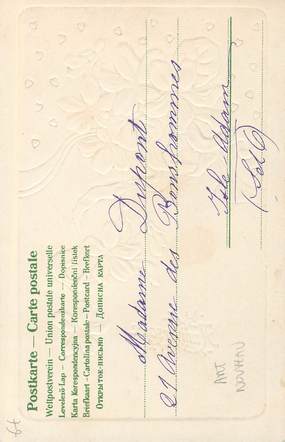 Postkarte — Carte postale
Weltpostverein — Union postale universelle
Levelezö-Lap — Correspondenzkarte — Dopisnice
Karta Korespondencyjna — Korespondenční lístek
Briefkaart - Cartolina postale - Postcard - Brefkort
Открытое письмо — Дописна карта
Madame Dupont
21 Avenue des Bonshommes
Isle Adam
(S et O)
ART
NOUVEAU